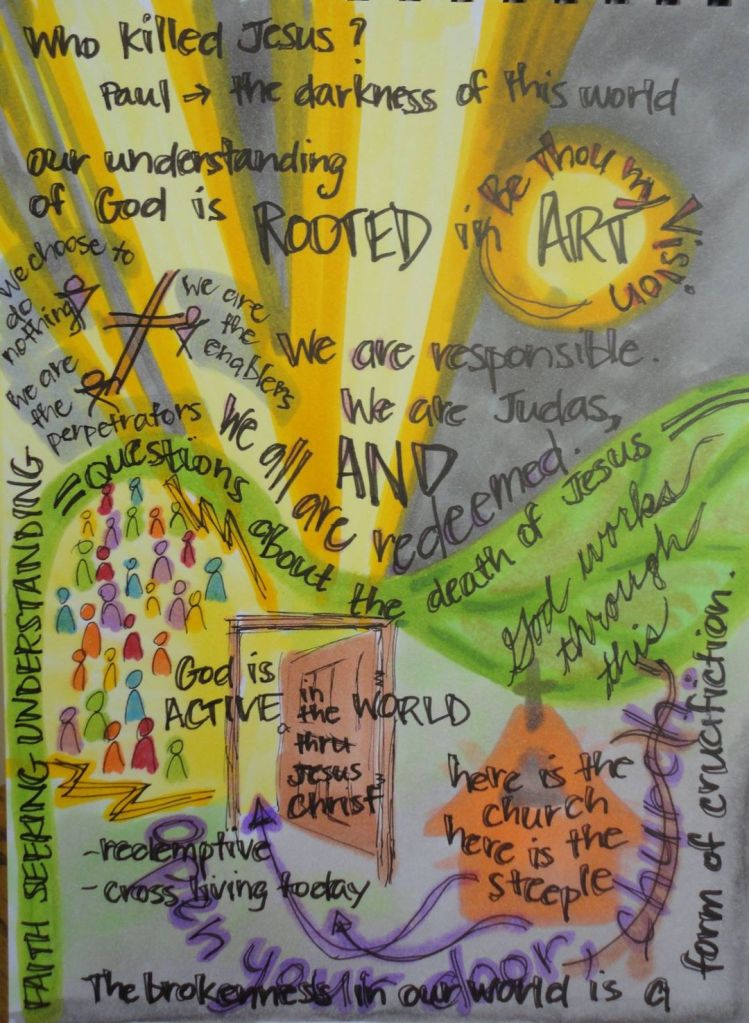 Who killed Jesus?
Paul → the darkness of this world
our understanding
of God is
ROOTED in ART
Be Thou my Vision.
we choose to
do
nothing
we are
the
enablers
we are
the
perpetrators
We are responsible.
We are Judas,
AND
We all are redeemed.
= Questions about the death of Jesus =
God works
through
this
FAITH SEEKING UNDERSTANDING
God is
ACTIVE in the WORLD
thru
Jesus
Christ
- redemptive
- cross living today
here is the
church
here is the
steeple
Open your door, church
The brokenness in our world is a form of crucifiction.